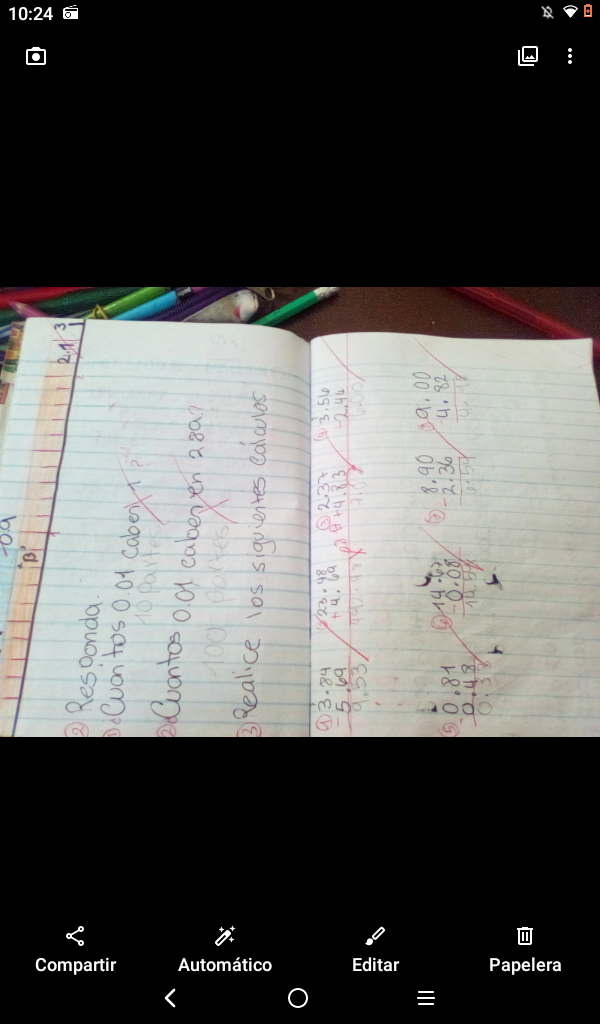 10:24
"B"
2.1 3
② Responda.
① ¿Cuantos 0.01 caben 1?
10 Partes
② Cuantos 0.01 caben en
100 partes
③ Realice los siguientes cálculos
① 3.84 ② 23.48 ③ 2.37 ④ 3.56
- 5.69 + 4.69 + 4.83 + 2.44
9.53 6.00
⑤ 0.81 ⑥ 14.67 ⑦ 8.90 9.00
- 0.48 - 0.08 - 2.36 - 4.82
0.33
Compartir
Automático
Editar
Papelera